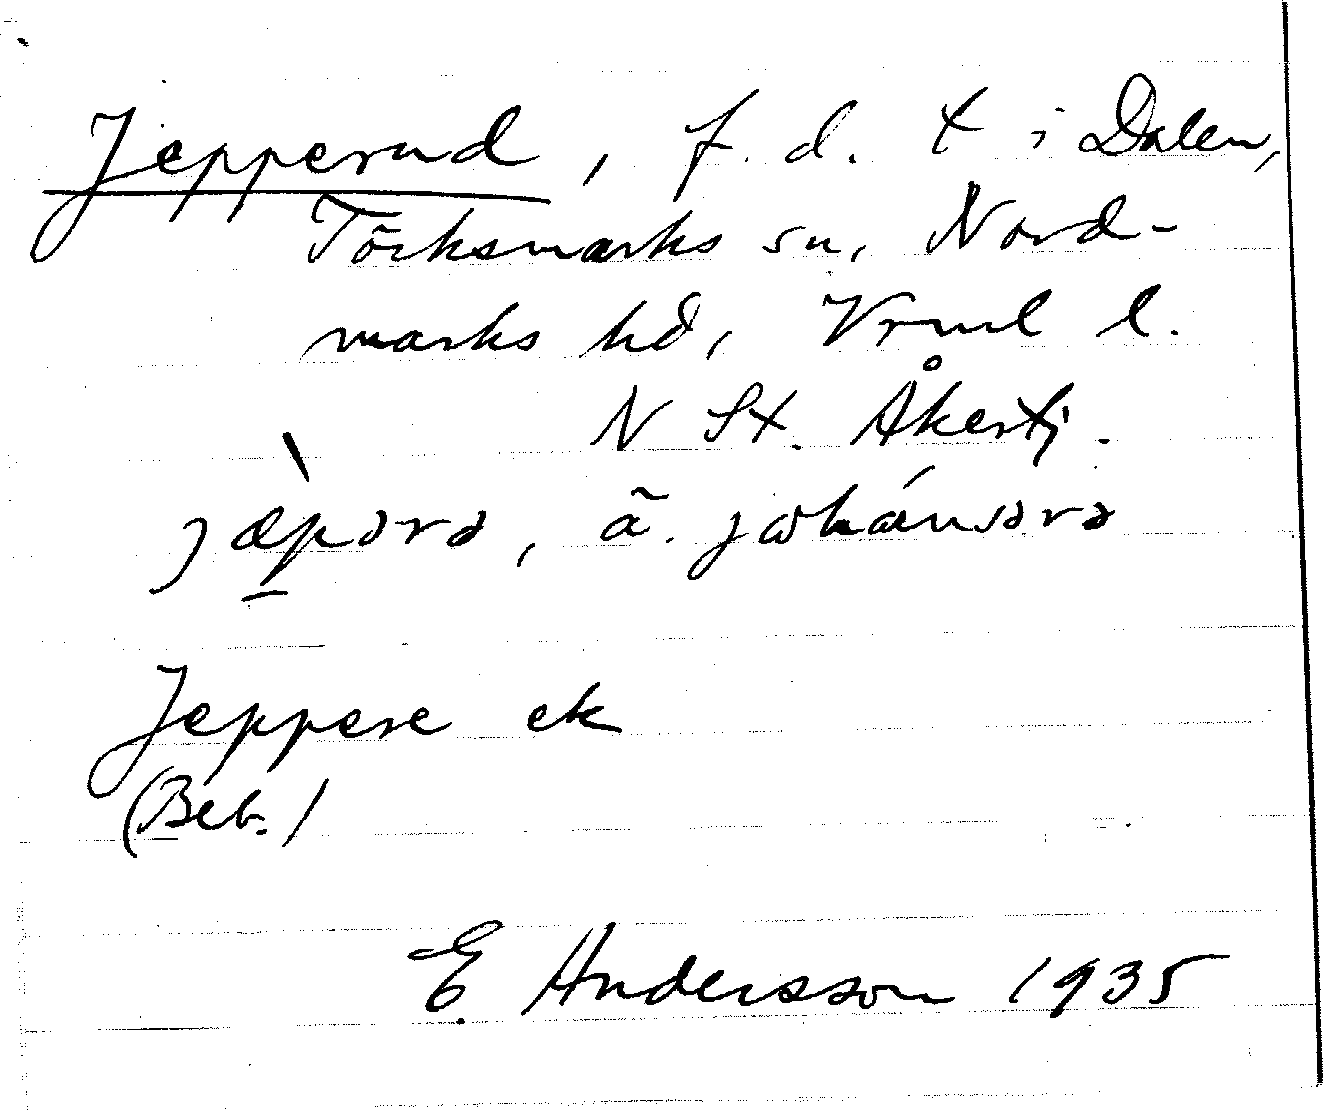 Jepperud, f. d. t i Dalen,
Töcksmarks sn, Nord-
marks hd, Vrml l.
N St. Åkertj.
jæ̀pərə, ä. jɷhánsərə
Jeppere ek
(Beb.)
E. Andersson 1935